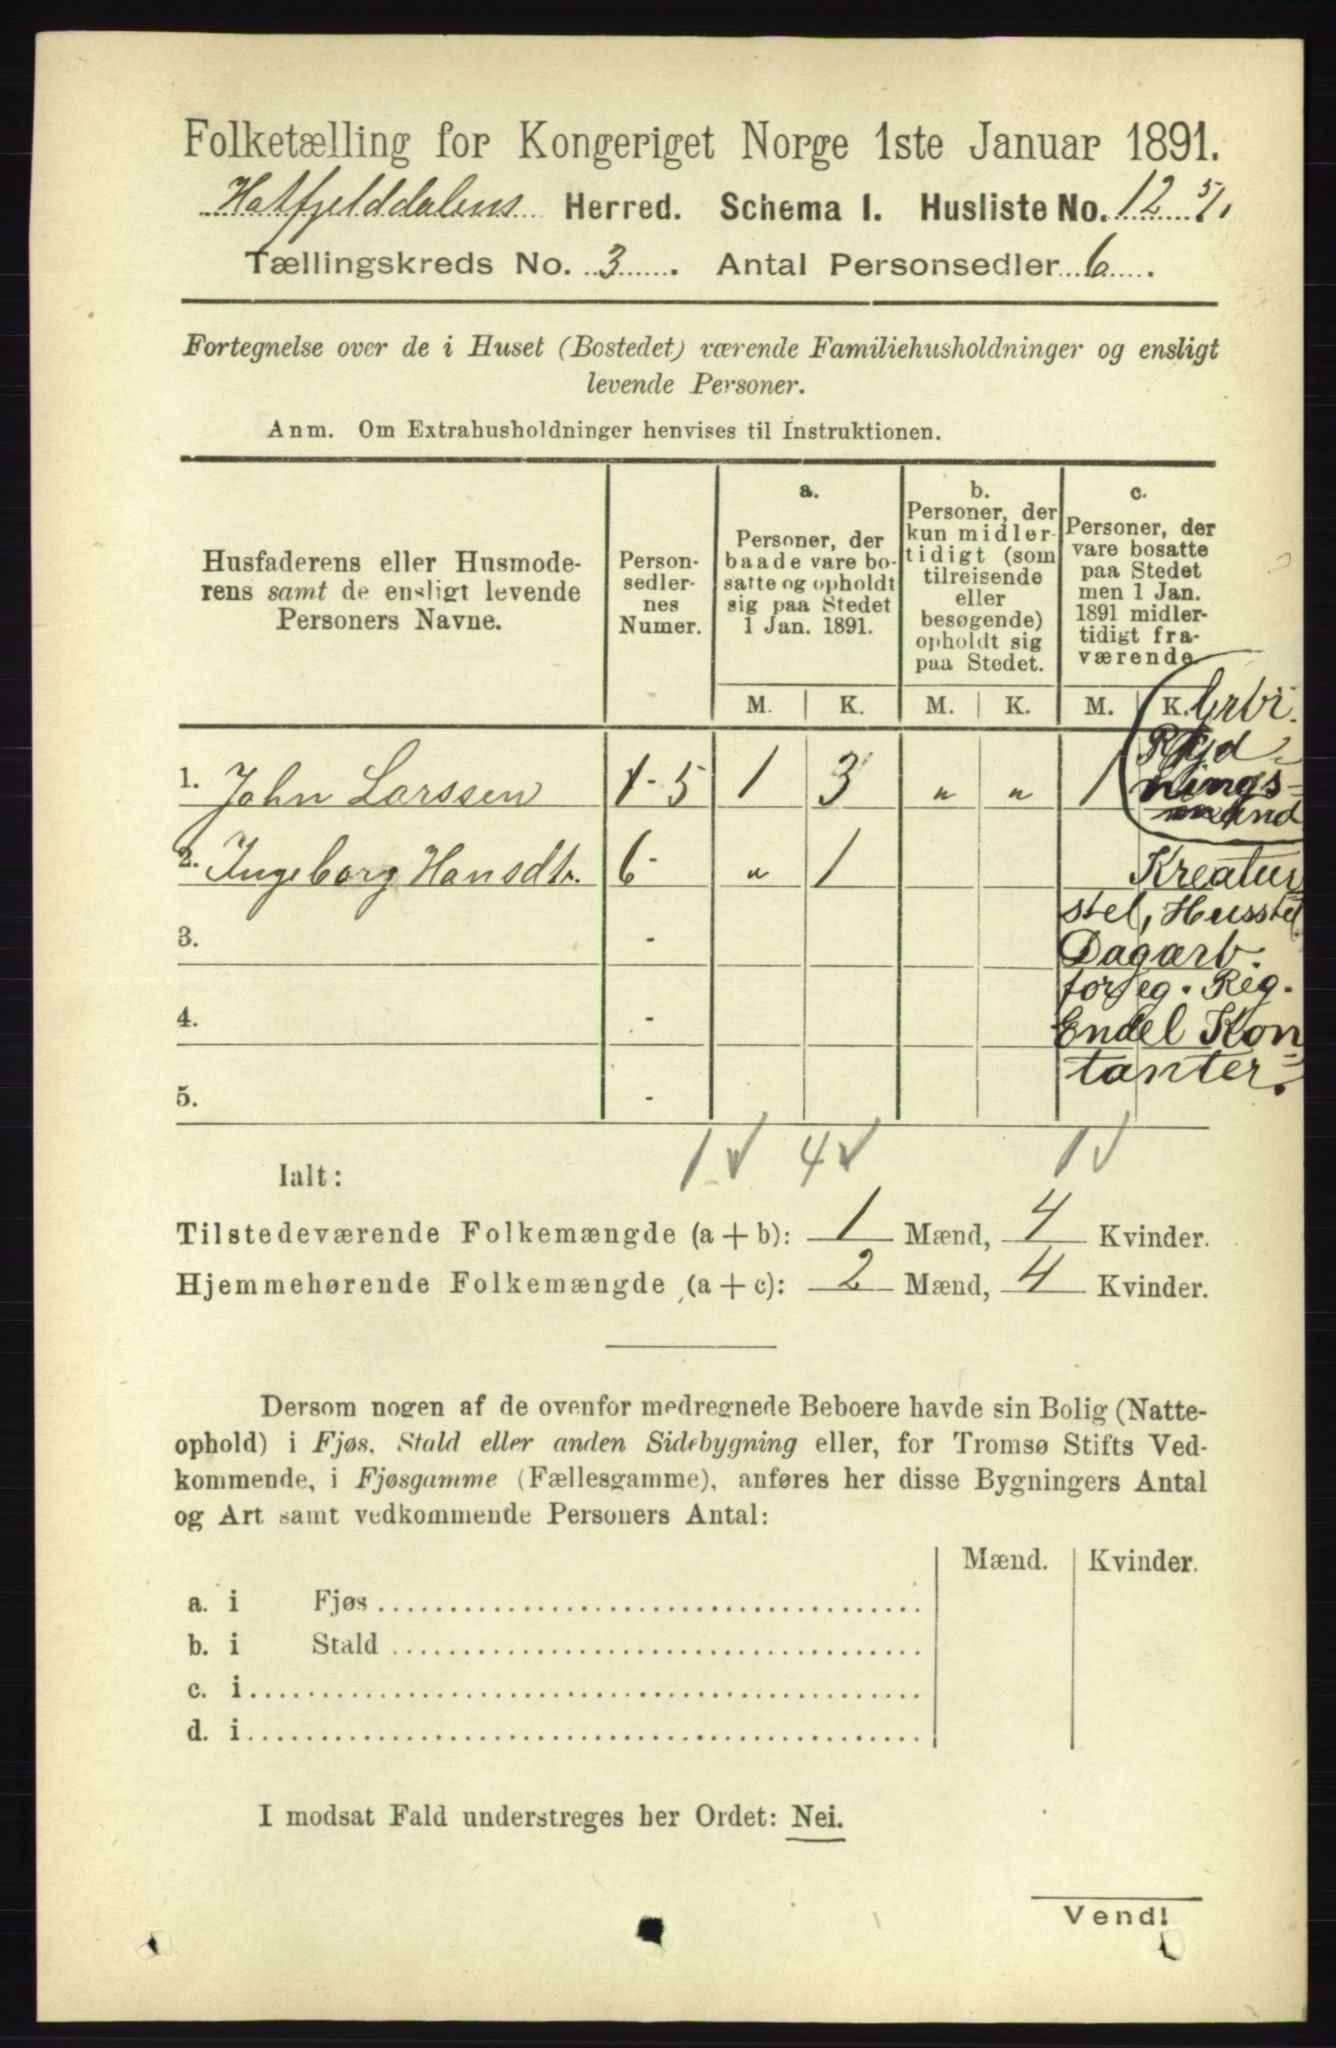 Folketælling for Kongeriget Norge 1ste Januar 1891.
Hatfjelddalens Herred. Schema I. Husliste No. 12 5/1
Tællingskreds No. 3. Antal Personsedler 6.
Fortegnelse over de i Huset (Bostedet) værende Familiehusholdninger og ensligt
levende Personer.
Anm. Om Extrahusholdninger henvises til Instruktionen.
Husfaderens eller Husmode-
rens samt de ensligt levende
Personers Navne.
Person-
sedler-
nes
Numer.
a.
Personer, der
baade vare bo-
satte og opholdt
sig paa Stedet
1 Jan. 1891.
b.
Personer, der
kun midler-
tidigt (som
tilreisende
eller
besøgende)
opholdt sig
paa Stedet.
c.
Personer, der
vare bosatte
paa Stedet
men 1 Jan.
1891 midler-
tidigt fra-
værende
M. K. M. K. M. K.
1. John Larssen 1-5 1 3 „ „ 1
2. Ingeborg Hansdtr. 6- „ 1
3. -
4. -
5. -
Ryd-
nings-
mand
Kreatur
stel, Husstel
Dagarb.
for eg. Reg.
Endel Kon
tanter.
1 4 1
Ialt:
Tilstedeværende Folkemængde (a + b): 1 Mænd, 4 Kvinder.
Hjemmehørende Folkemængde (a + c): 2 Mænd, 4 Kvinder.
Dersom nogen af de ovenfor medregnede Beboere havde sin Bolig (Natte-
ophold) i Fjøs, Stald eller anden Sidebygning eller, for Tromsø Stifts Ved-
kommende, i Fjøsgamme (Fællesgamme), anføres her disse Bygningers Antal
og Art samt vedkommende Personers Antal:
Mænd. Kvinder.
a. i Fjøs
b. i Stald
c. i
d. i
I modsat Fald understreges her Ordet: Nei.
Vend!